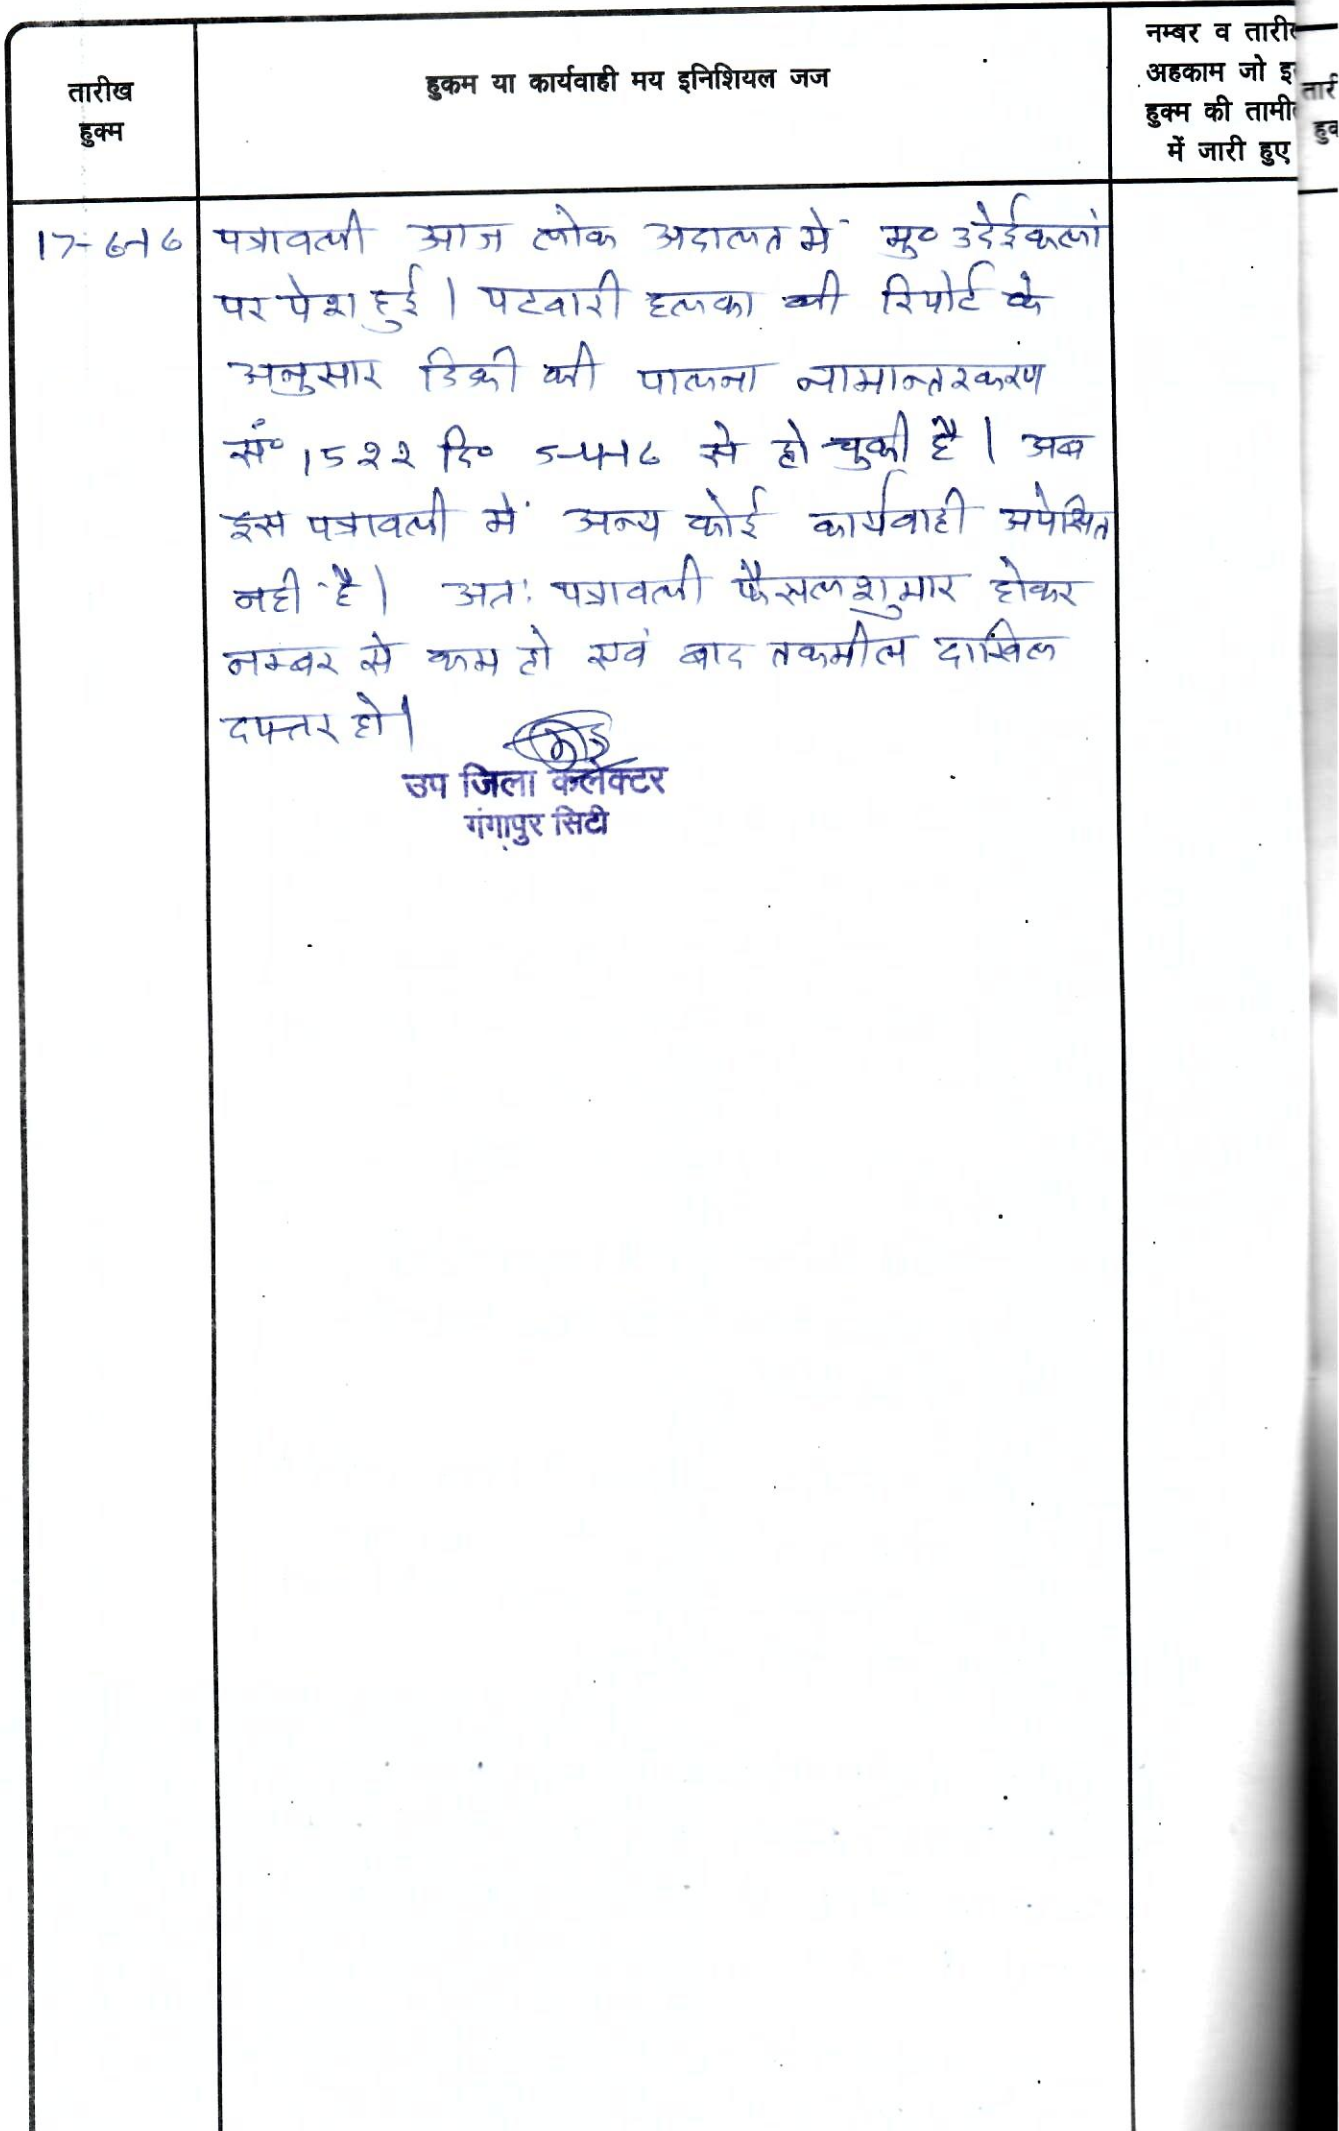 तारीख
हुक्म
हुकम या कार्यवाही मय इनिशियल जज
नम्बर व तारी
अहकाम जो इ
हुक्म की तामी
में जारी हुए
तारी
हुक
17-6-16
पत्रावली आज लोक अदालत में मु० उदेईकलां
पर पेश हुई। पटवारी हल्का की रिपोर्ट के
अनुसार डिक्री की पालना नामान्तरकरण
सं० 1522 दि० 5-4-16 से हो चुकी है। अब
इस पत्रावली में अन्य कोई कार्यवाही अपेक्षित
नही है। अतः पत्रावली फैसलशुमार होकर
नम्बर से कम हो एवं बाद तकमील दाखिल
दफ्तर हो।
उप जिला कलेक्टर
गंगापुर सिटी